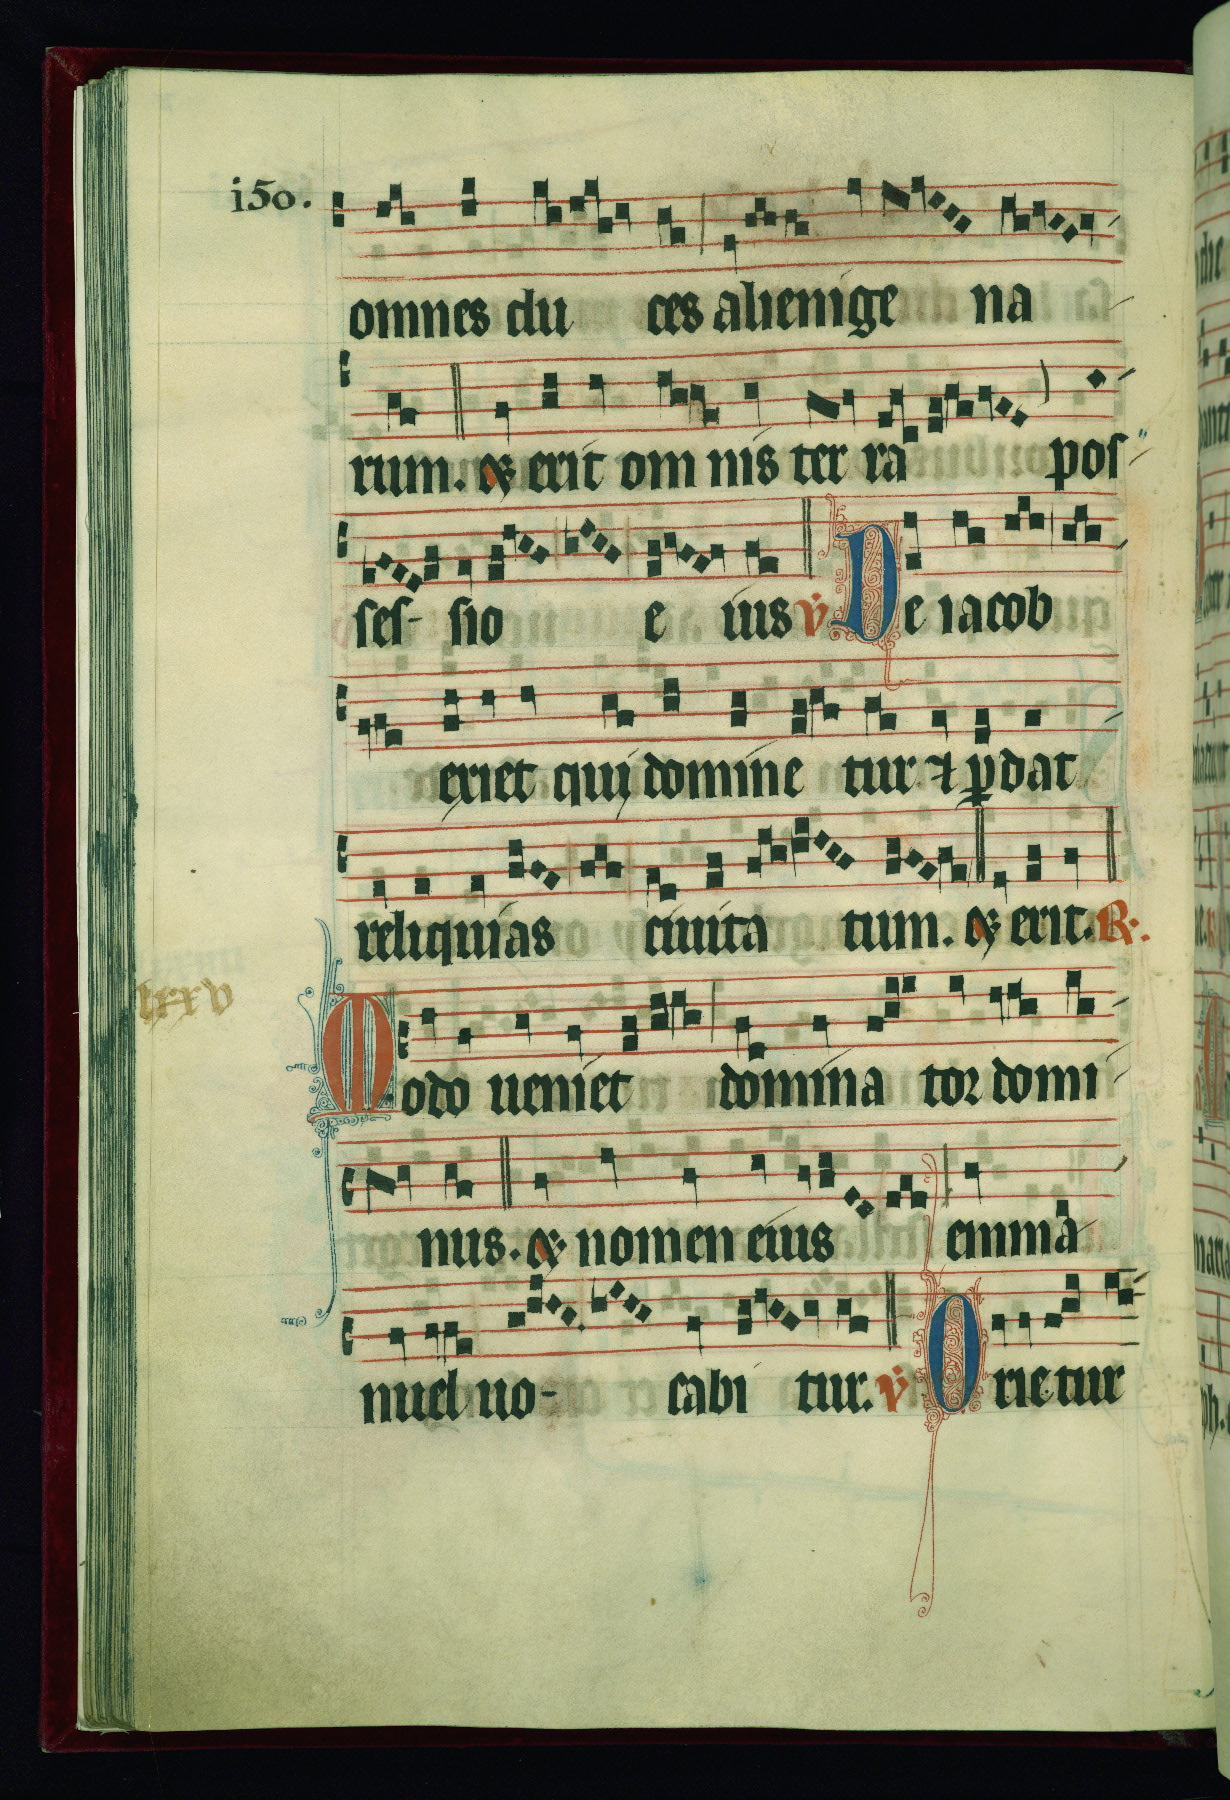 i50.
omnes du ces alienige na
rum. & erit om nis ter ra pos
ses- sio e ius v̇ De iacob
exiet qui domine tur ⁊ ꝑdat
reliquias ciuita tum. & erit. R.
lxxv
Modo ueniet domina tor domi
nus. & nomen eius emma
nuel uo- cabi tur. v̇ Orietur